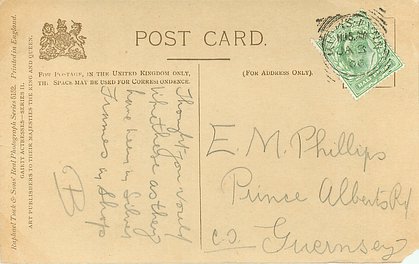 Raphael Tuck & Sons' Real Photograph Series 5132. Printed in England.
GAIETY ACTRESSES—SERIES II.
ART PUBLISHERS TO THEIR MAJESTIES THE KING AND QUEEN.
POST CARD.
FOR POSTAGE, IN THE UNITED KINGDOM ONLY,
THIS SPACE MAY BE USED FOR CORRESPONDENCE.
(FOR ADDRESS ONLY.)
Thought you would
like these as they
have been in Silver
Frames in Shops
B
E. M. Phillips
Prince Alberts Rd
Guernsey